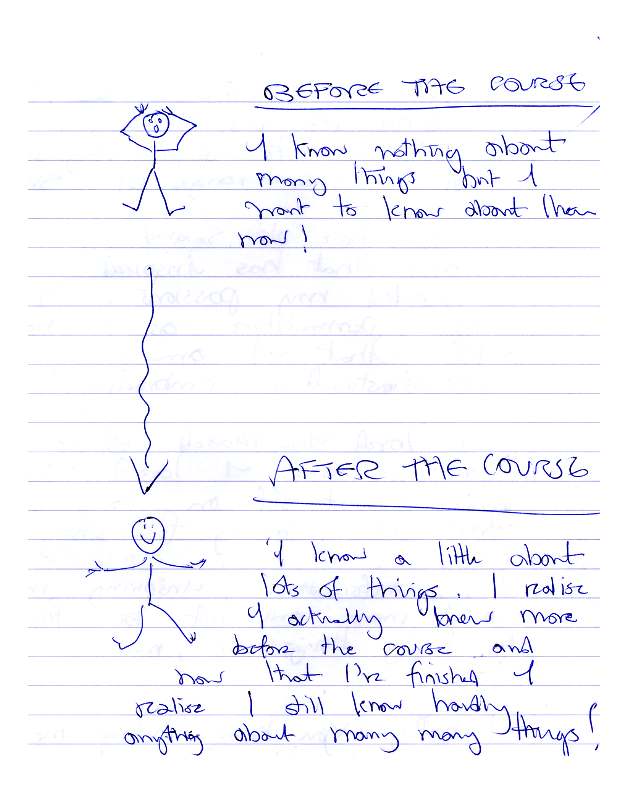 BEFORE THE COURSE
I know nothing about
many things but I
want to know about them
now!
AFTER THE COURSE
I know a little about
lots of things. I realise
I actually knew more
before the course and
now that I've finished I
realise I still know hardly
anything about many many things!